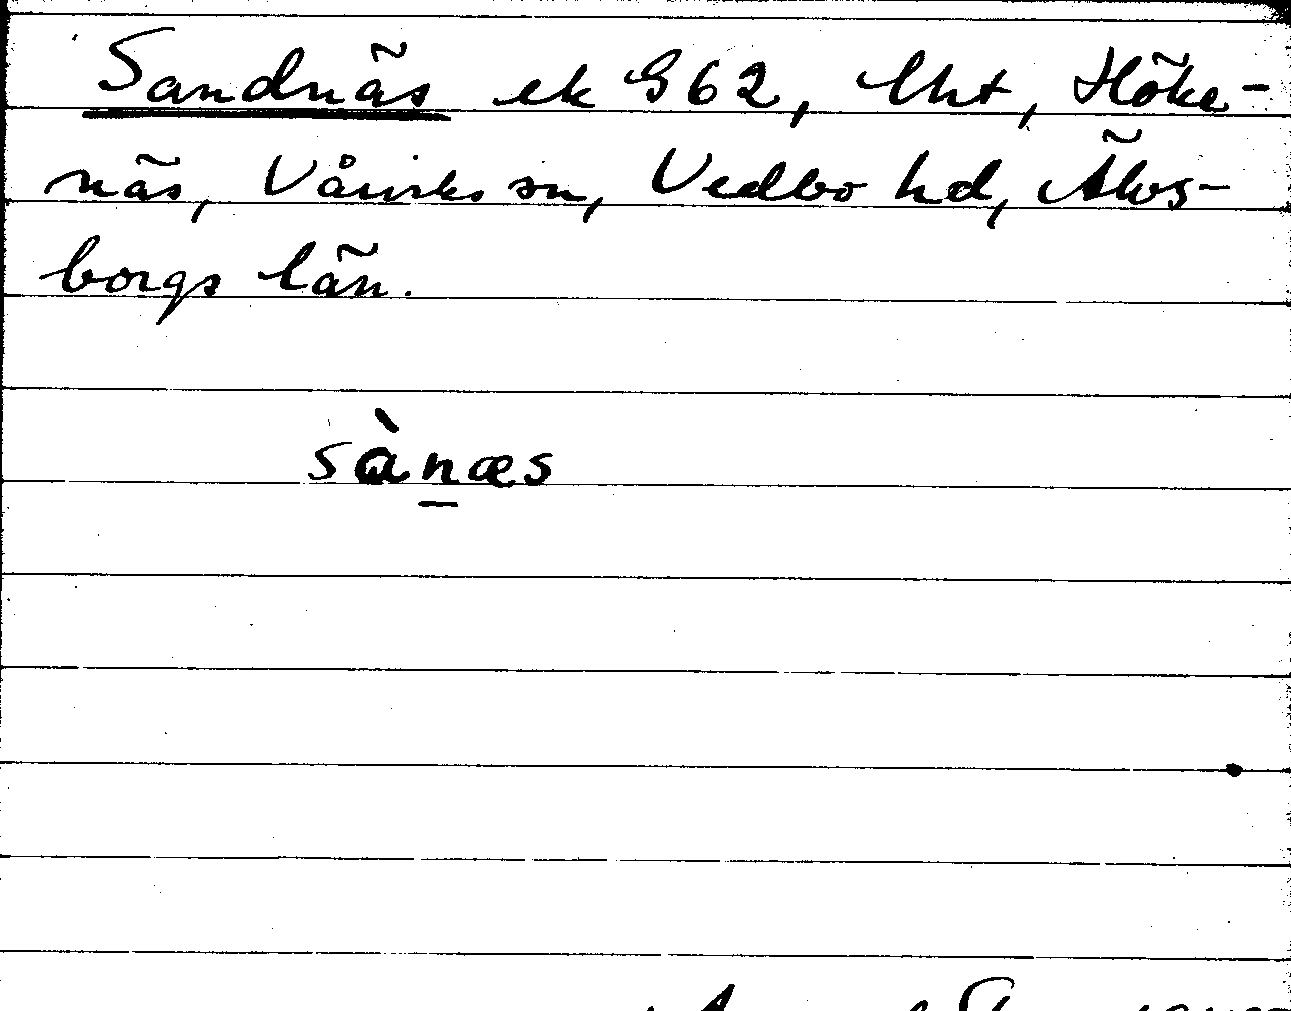 Sandnäs ek G 62, lht, Höke-
näs, Vårviks sn, Vedbo hd, Älvs-
borgs län.
sànæs